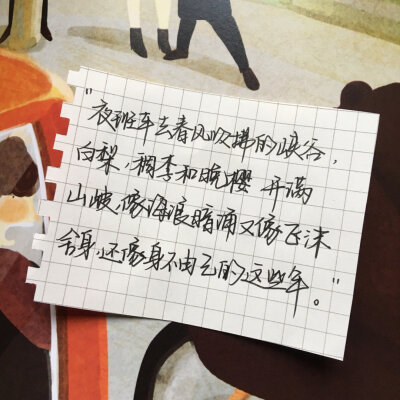 "夜班车去春风吹拂的峡谷,
白梨、稠李和晚樱 开满
山坡、像海浪暗涌又像飞沫
舍身,还像身不由己的这些年。"